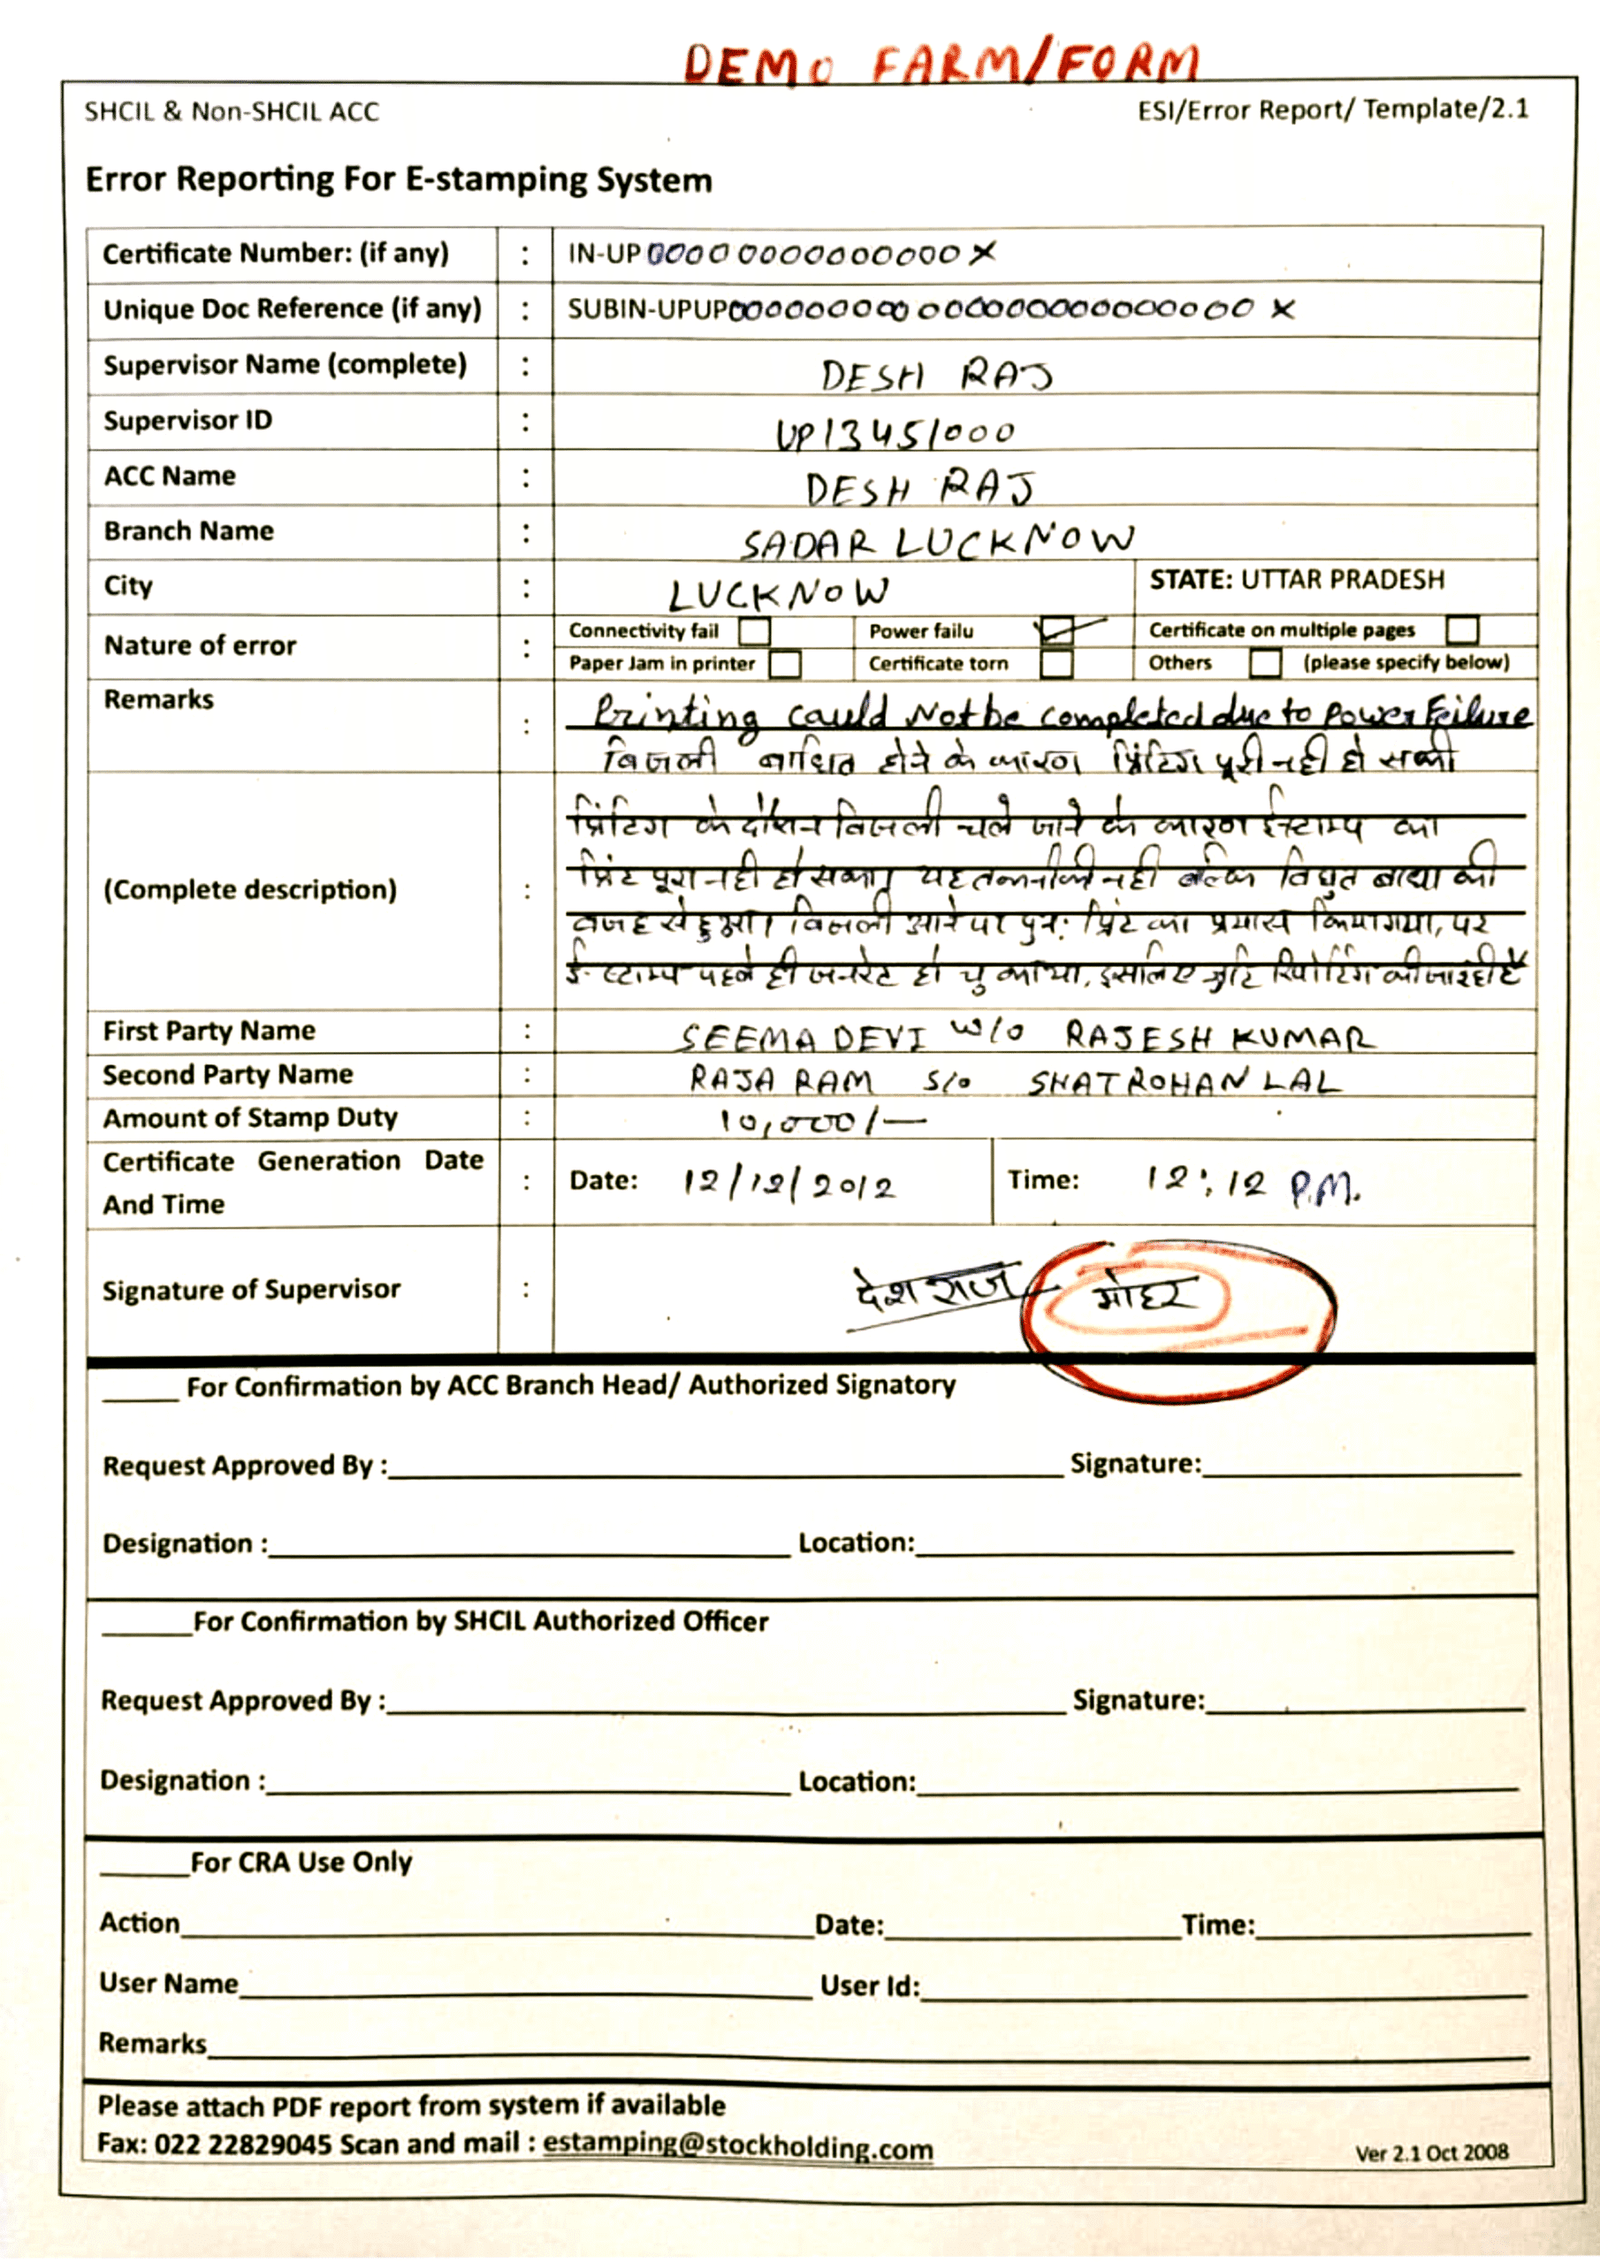 DEMO FARM/FORM
SHCIL & Non-SHCIL ACC ESI/Error Report/ Template/2.1
Error Reporting For E-stamping System
Certificate Number: (if any) : IN-UP 0000 00000000000 X
Unique Doc Reference (if any) : SUBIN-UPUP
Supervisor Name (complete) : DESH RAJ
Supervisor ID : UP13451000
ACC Name : DESH RAJ
Branch Name : SADAR LUCKNOW
City : LUCKNOW STATE: UTTAR PRADESH
Nature of error : Connectivity fail Power failu Certificate on multiple pages
Paper Jam in printer Certificate torn Others (please specify below)
Remarks : Printing could Not be completed due to power Failure
बिजली बाधित होने के कारण प्रिंटिंग पूरी नही हो सकी
(Complete description) : प्रिंटिंग के दौरान बिजली चले जाने के कारण ईस्टाम्प का
प्रिंट पूरा नही हो सका। यह तकनीकी नही बल्कि विद्युत बाधा की
वजह से हुआ। बिजली आने पर पुन: प्रिंट का प्रयास किया गया, पर
ई-स्टाम्प पहले ही जनरेट हो चुका था, इसलिए त्रुटि रिपोर्टिंग की जा रही है
First Party Name : SEEMA DEVI W/O RAJESH KUMAR
Second Party Name : RAJA RAM S/O SHATROHAN LAL
Amount of Stamp Duty : 10,000/-
Certificate Generation Date And Time : Date: 12/12/2012 Time: 12:12 P.M.
Signature of Supervisor : देश राज मोहर
For Confirmation by ACC Branch Head/ Authorized Signatory
Request Approved By : Signature:
Designation : Location:
For Confirmation by SHCIL Authorized Officer
Request Approved By : Signature:
Designation : Location:
For CRA Use Only
Action Date: Time:
User Name User Id:
Remarks
Please attach PDF report from system if available
Fax: 022 22829045 Scan and mail : estamping@stockholding.com
Ver 2.1 Oct 2008